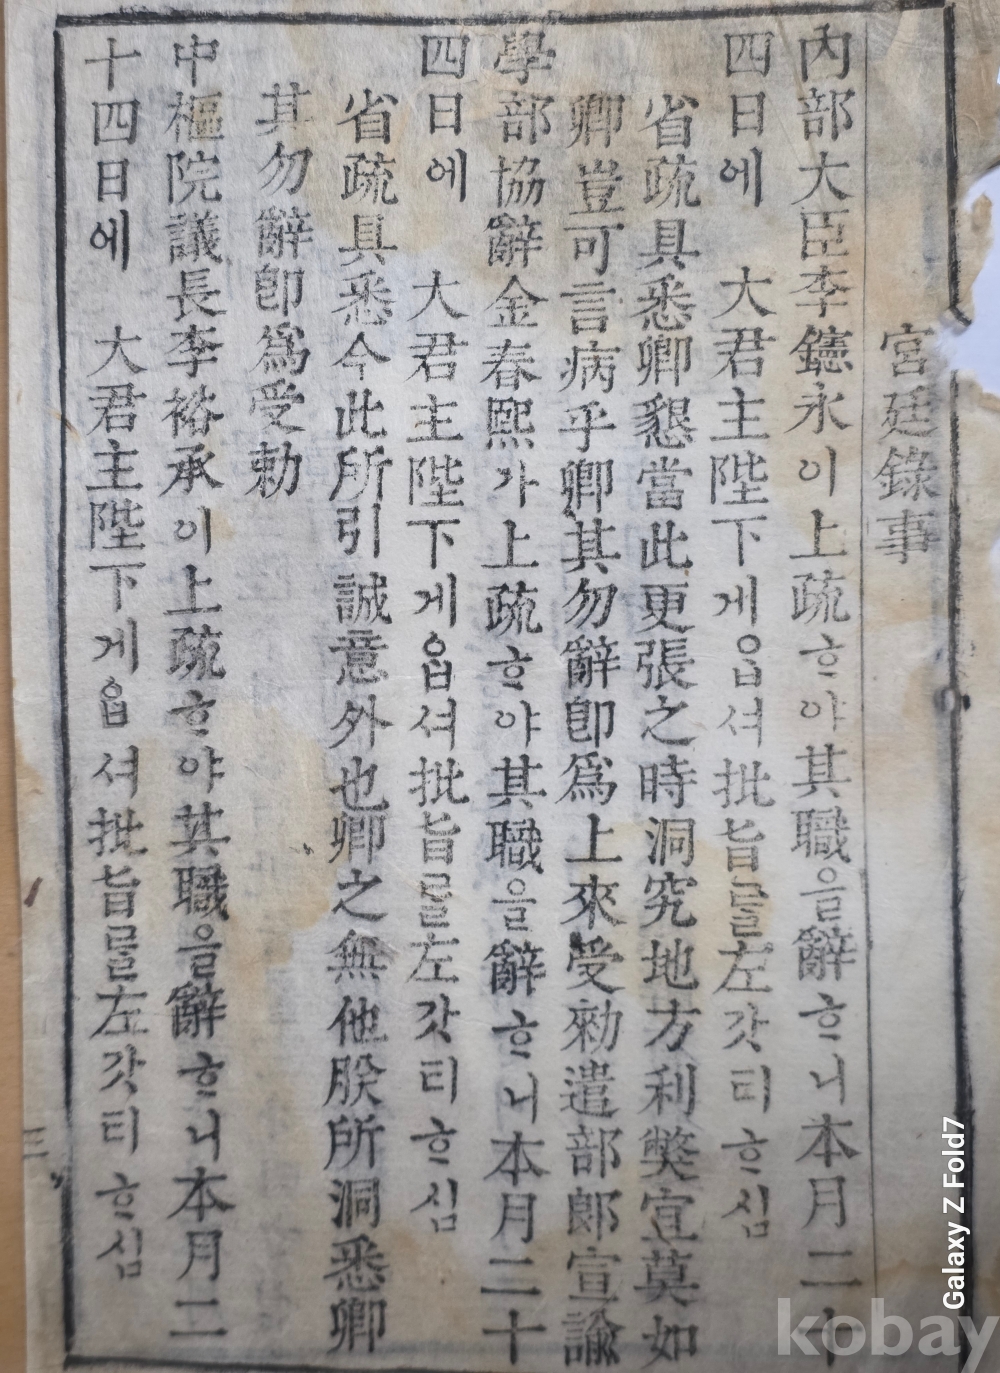 宮廷錄事
內部大臣李鑓永이上疏ᄒᆞ야其職을辭ᄒᆞ니本月二十
四日에 大君主陛下게읍셔批旨를左갓티ᄒᆞ심
省疏具悉卿懇當此更張之時洞究地方利獘宜莫如
卿豈可言病乎卿其勿辭卽爲上來受勑遣部郞宣諭
學部協辭金春熙가上疏ᄒᆞ야其職을辭ᄒᆞ니本月二十
四日에 大君主陛下게읍셔批旨를左갓티ᄒᆞ심
省疏具悉今此所引誠意外也卿之無他朕所洞悉卿
其勿辭卽爲受勅
中樞院議長李裕承이上疏ᄒᆞ야其職을辭ᄒᆞ니本月二
十四日에 大君主陛下게읍셔批旨를左갓티ᄒᆞ심
三
Galaxy Z Fold7
kobay